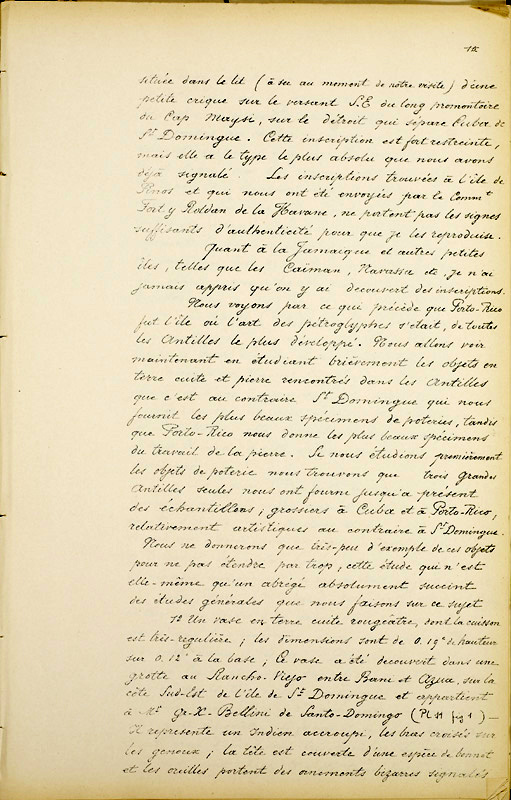 15
située dans le lit (à sec au moment de notre visite) d'une
petite crique sur le versant S.E. du long promontoire
du Cap Maysi, sur le détroit qui sépare Cuba de
St Domingue. Cette inscription est fort restreinte,
mais elle a le type le plus absolu que nous avons
déjà signalé. Les inscriptions trouvées à l'île de
Pinos et qui nous ont été envoyées par le Commt
Fort y Roldan de la Havane, ne portent pas les signes
suffisants d'authenticité pour que je les reproduise.
Quant à la Jamaïque et autres petites
îles, telles que les Caïman, Navassa etc. je n'ai
jamais appris qu'on y ai decouvert des inscriptions.
Nous voyons par ce qui précède que Porto-Rico
fut l'île où l'art des pétroglyphes s'était, de toutes
les Antilles le plus développé. Nous allons voir
maintenant en étudiant brièvement les objets en
terre cuite et pierre rencontrés dans les Antilles
que c'est au contraire St Domingue qui nous
fournit les plus beaux spécimens de poteries, tandis
que Porto-Rico nous donne les plus beaux spécimens
du travail de la pierre. Si nous étudions premièrement
les objets de poterie nous trouvons que trois Grandes
Antilles seules nous ont fourni jusqu'a présent
des echantillons; grossiers à Cuba et à Porto-Rico,
relativement artistiques au contraire à St Domingue.
Nous ne donnerons que très-peu d'exemple de ces objets
pour ne pas étendre par trop, cette étude qui n'est
elle-même qu'un abrégé absolument succint
des études générales que nous faisons sur ce sujet
1º Un vase en terre cuite rougeâtre, dont la cuisson
est très-regulière; les dimensions sont de 0.19c de hauteur
sur 0.12c à la base; Ce vase a été decouvert dans une
grotte au Rancho-Viejo entre Bani et Azua, sur la
côte Sud-Est de l'île de St Domingue et appartient
à Mr Gx-X- Bellini de Santo-Domingo (Pl 11 fig 1) —
Il représente un Indien accroupi, les bras croisés sur
les genoux; la tête est couverte d'une espèce de bonnet
et les oreilles portent des ornements bizarres signalés